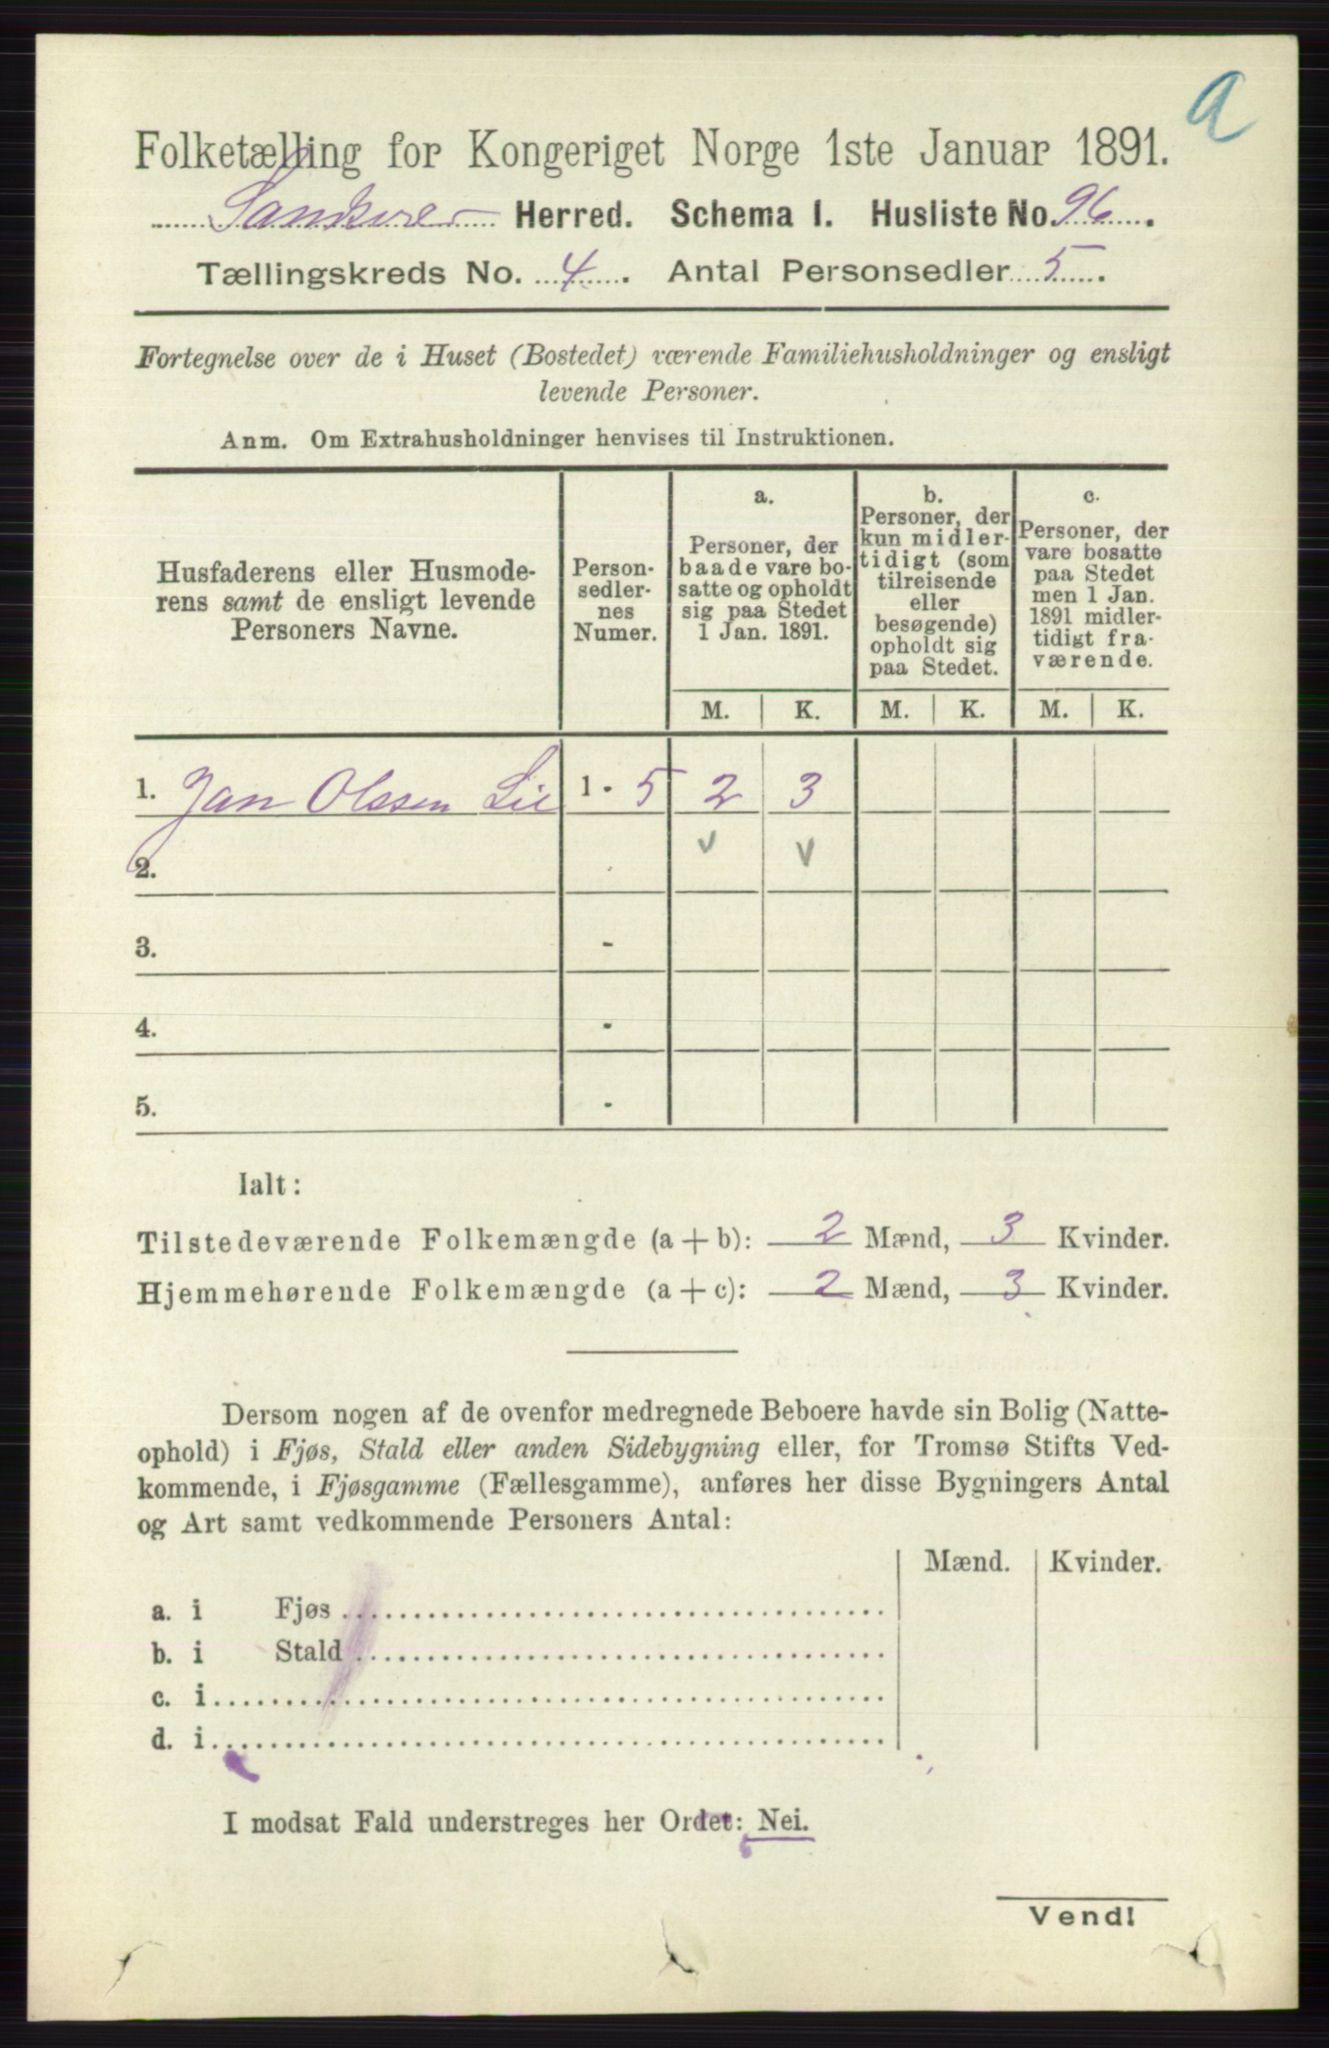 a
Folketælling for Kongeriget Norge 1ste Januar 1891.
Sandsver Herred. Schema I. Husliste No. 96.
Tællingskreds No. 4. Antal Personsedler 5.
Fortegnelse over de i Huset (Bostedet) værende Familiehusholdninger og ensligt
levende Personer.
Anm. Om Extrahusholdninger henvises til Instruktionen.
Husfaderens eller Husmode-
rens samt de ensligt levende
Personers Navne.
Person-
sedler-
nes
Numer.
a.
Personer, der
baade vare bo-
satte og opholdt
sig paa Stedet
1 Jan. 1891.
b.
Personer, der
kun midler-
tidigt (som
tilreisende
eller
besøgende)
opholdt sig
paa Stedet.
c.
Personer, der
vare bosatte
paa Stedet
men 1 Jan.
1891 midler-
tidigt fra-
værende.
M. K. M. K. M. K.
1. Jan Olssen Lie 1 - 5 2 3
2.
3. -
4. -
5. -
Ialt:
Tilstedeværende Folkemængde (a + b): 2 Mænd, 3 Kvinder.
Hjemmehørende Folkemængde (a + c): 2 Mænd, 3 Kvinder.
Dersom nogen af de ovenfor medregnede Beboere havde sin Bolig (Natte-
ophold) i Fjøs, Stald eller anden Sidebygning eller, for Tromsø Stifts Ved-
kommende, i Fjøsgamme (Fællesgamme), anføres her disse Bygningers Antal
og Art samt vedkommende Personers Antal:
Mænd. Kvinder.
a. i Fjøs
b. i Stald
c. i
d. i
I modsat Fald understreges her Ordet: Nei.
Vend!